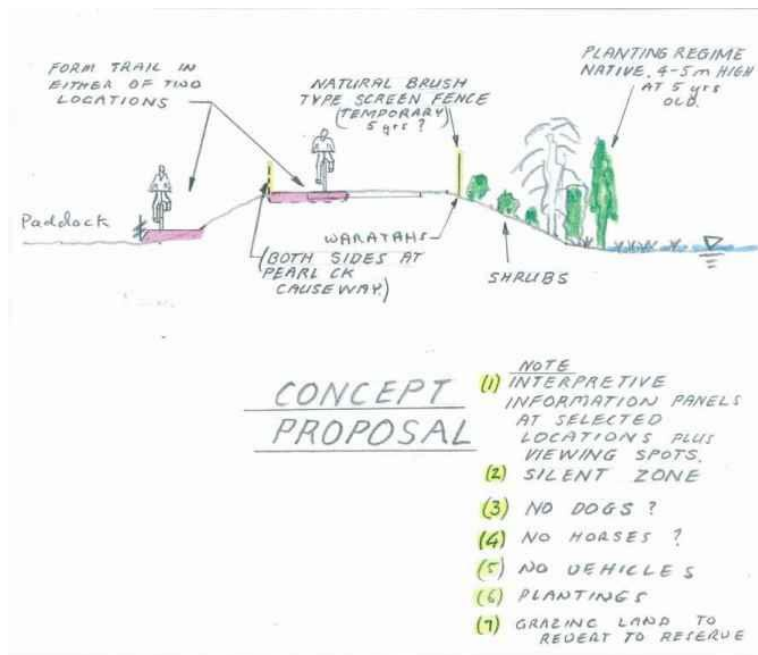 FORM TRAIL IN
EITHER OF TWO
LOCATIONS
NATURAL BRUSH
TYPE SCREEN FENCE
(TEMPORARY)
5 yrs ?
PLANTING REGIME
NATIVE. 4-5m HIGH
AT 5 yrs
OLD.
Paddock
WARATAHS
(BOTH SIDES AT
PEARL CK
CAUSEWAY.)
SHRUBS
CONCEPT
PROPOSAL
NOTE
(1) INTERPRETIVE
INFORMATION PANELS
AT SELECTED
LOCATIONS PLUS
VIEWING SPOTS.
(2) SILENT ZONE
(3) NO DOGS ?
(4) NO HORSES ?
(5) NO VEHICLES
(6) PLANTINGS
(7) GRAZING LAND TO
REVERT TO RESERVE